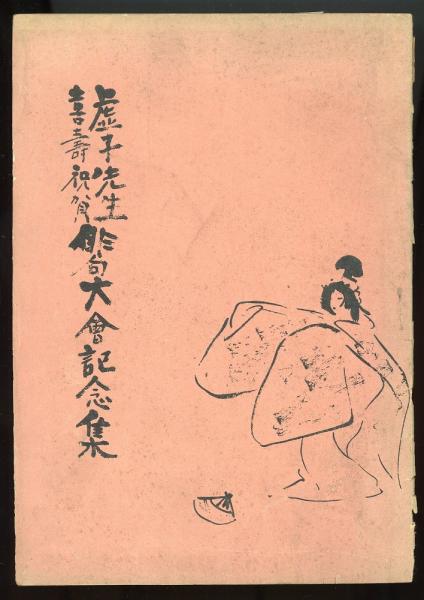 虚子先生
喜壽祝賀
俳句大會記念集